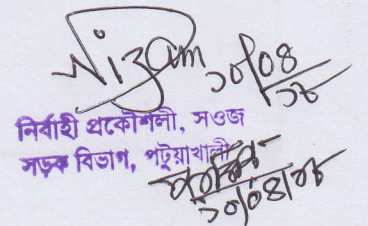 Nizam
১০/০৪
১৮
নির্বাহী প্রকৌশলী, সওজ
সড়ক বিভাগ, পটুয়াখালী
১০/০৪/১৮